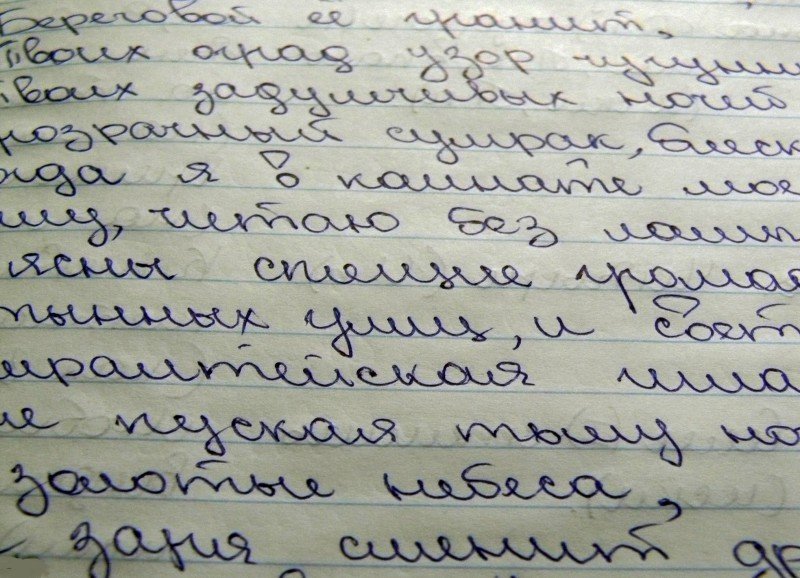 Береговой её гранит,
Твоих оград узор чугунн
Твоих задумчивых ночей
розрачный сумрак, блеск
огда я в комнате мое
ишу, читаю без ламп
ясны спящие грома
тынных улиц, и светл
миралтейская игла
не пуская тьму но
золотые небеса,
заря сменит др